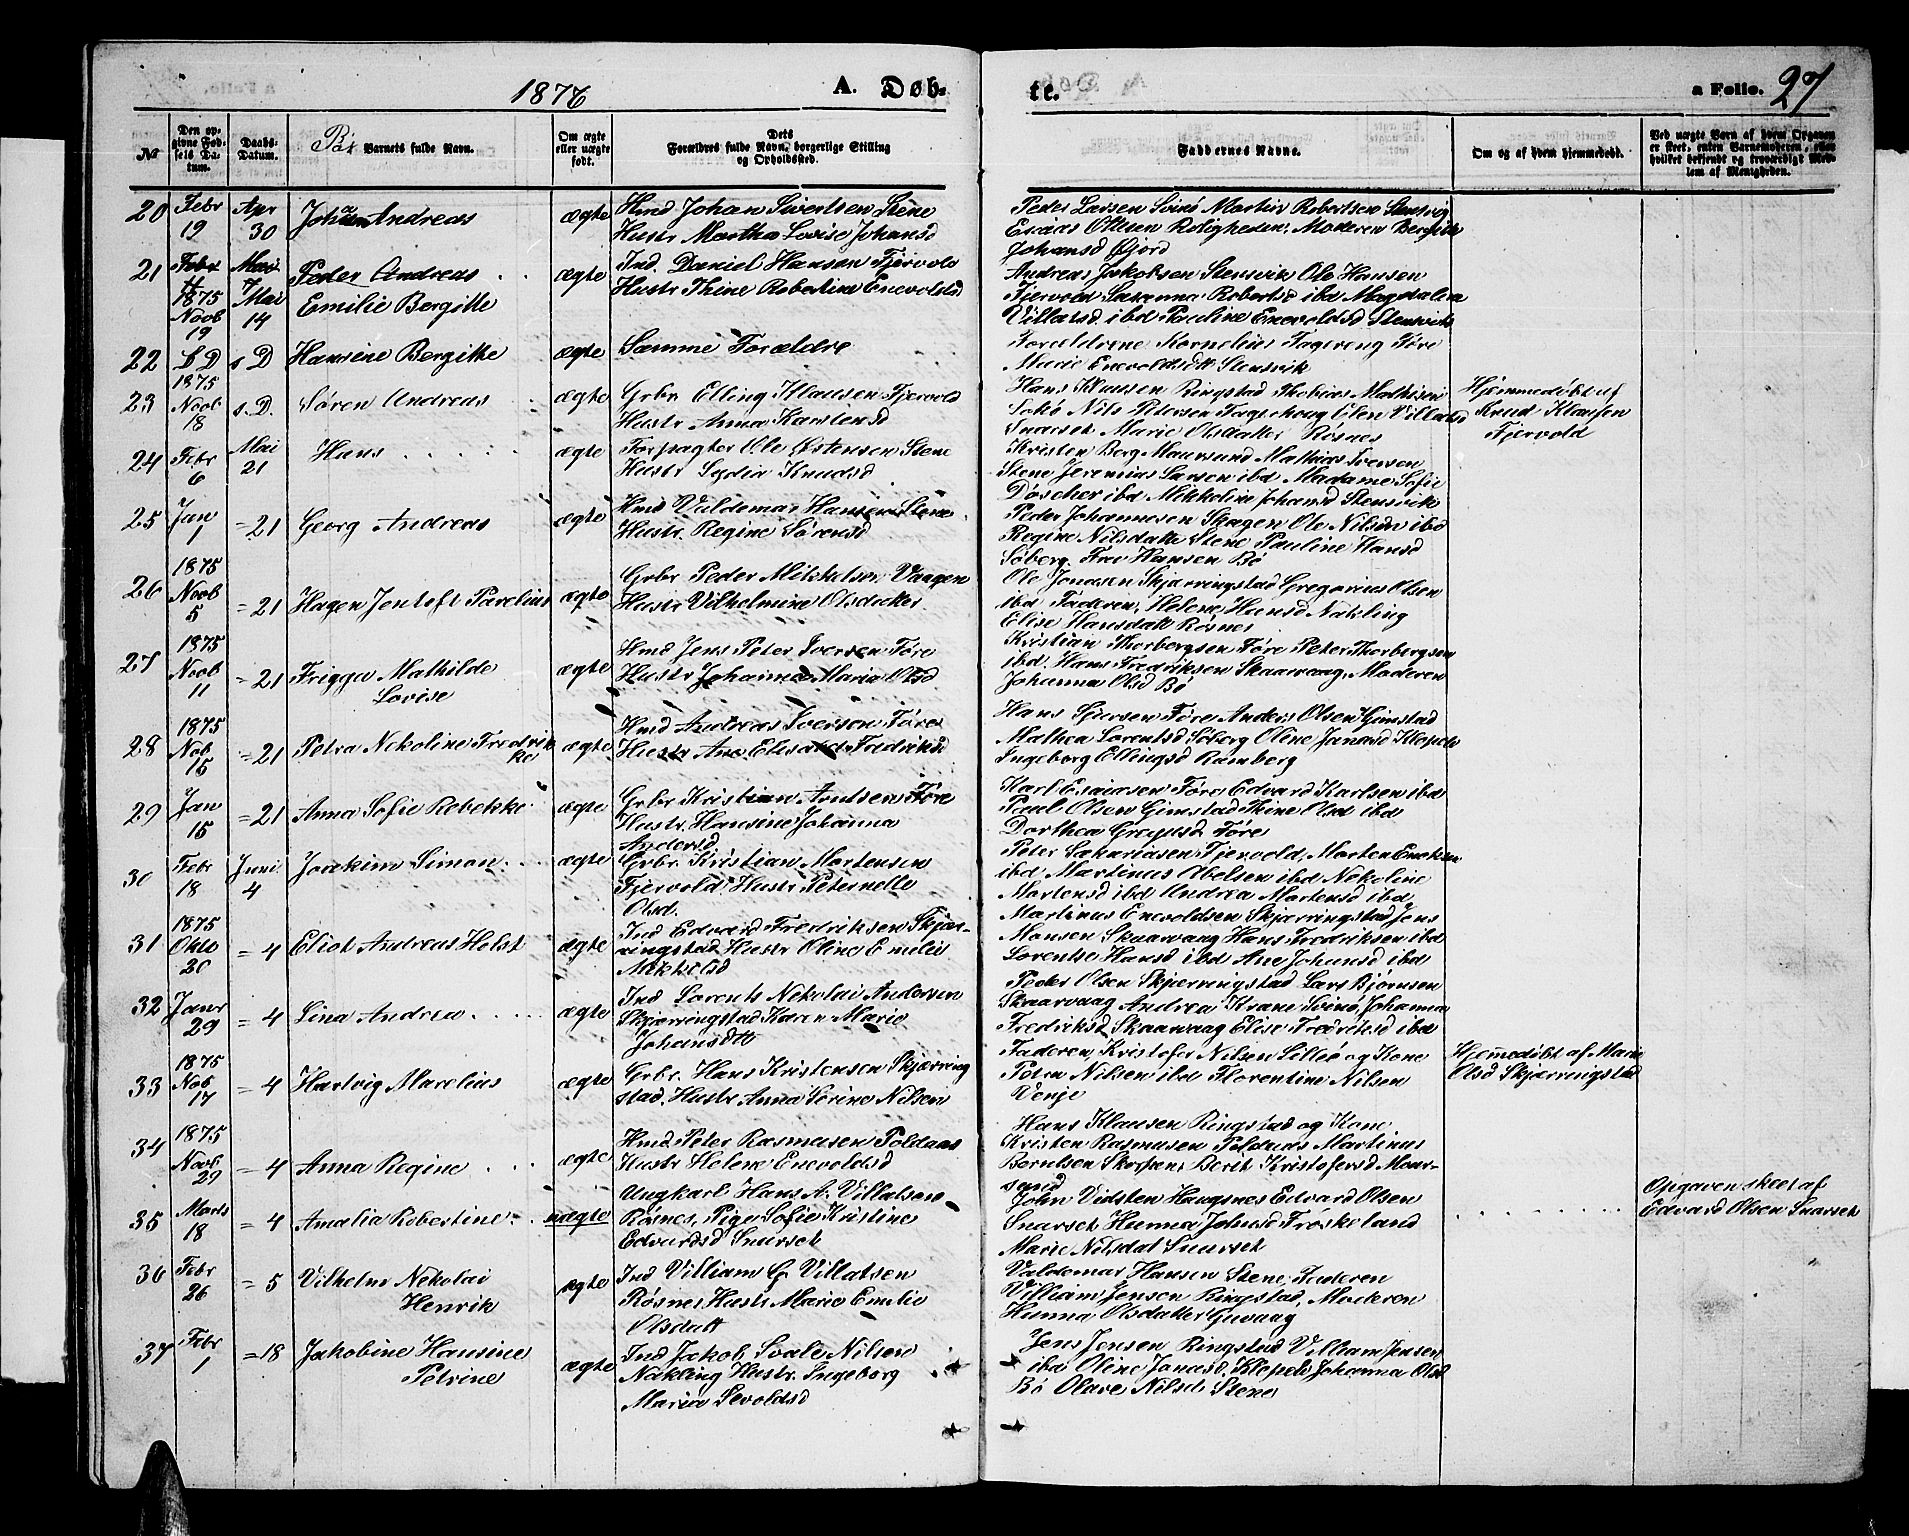 1876 A. Døb- te. a Folio. 27
No
Den op-
givne Fød-
sels Da-
tum.
Daabs-
Datum.
Bø Barnets fulde Navn.
Om ægte
eller uægte
født.
Dets
Forældres fulde Navn, borgerlige Stilling
og Opholdssted.
Faddernes Navne.
Om og af hvem hjemmedøbt.
Ved uægte Børn af hvem Opgaven
er skeet, enten Barnemoderen, eller
hvilket bekjendt og troværdigt Med-
lem af Menigheden.
20 Febr 19 Apr 30 Johan Andreas ægte Hmd Johan Sivertsen Stene
Hustr Martha Lovise Johansd
Peder Larsen Svinø Martin Robertsen Stensvig
Esaias Ottesen Roligheden, Moderen Bergith
Johansd Øjord
21 Febr Mai Peder Andreas ægte Ind. Daniel Hansen Fjervold
Hustr Thine Robertine Enevoldsd
1875 Novb 19 Mai 14 Emilie Bergitte
Andreas Jakobsen Stensvik Ole Hansen
Fjervold Susanna Robertsd ibd Magdalena
Villatsd. ibd Pauline Enevoldsd Stensvik
22 s D s D Hansine Bergitte ægte Samme Forældre
Forældrene Kornelius Fagereng Føre
Marie Enevoldsdtt Stensvik
23 1875 Novb 18 s. D. Søren Andreas ægte Grbr Elling Klausen Fjervold
Hustr Anna Karstensd
Hans Klausen Ringstad Thobias Mathisen
Sokø Nils Petersen Fagerhaug Elen Villatsd
Snarset Marie Olsdatter Røsnes
Hjemmedøbt af
Knud Klausen
Fjervold
24 Febr 6 Mai 21 Hans ægte Forpagter Ole Østensen Stene
Hustr Lydia Knudsd
Kristen Berg Maursund Mathias Iversen
Stene Jeremias Larsen ibd Madame Sofie
Døscher ibd Mikkoline Johansd Stensvik
25 Jan 1 = 21 Georg Andreas ægte Hmd Valdemar Hansen Stene
Hustr. Regine Sørensd
Peder Johannesen Skagen Ole Nilsen ibd
Regine Nilsdatte Stene Pauline Hansd
Søberg. Fru Hansen Bø
26 1875 Novb 5 = 21 Hagen Jentoft Parelius ægte Grbr Peder Mikkelsen Vaagen
Hustr Vilhelmine Olsdatter
Ole Jonasen Skjærringstad Gregorius Olsen
ibd Faderen, Helene Hansd Nakling
Elise Hansdatt Røsnes
27 1875 Novb 11 = 21 Frigga Mathilde
Lovise
ægte Hmd Jens Peter Iversen Føre
Hustr Johanna Maria Olsd
Kristian Thorbergsen Føre Peter Thorbergsen
ibd. Hans Fredriksen Skaarvaag, Moderen
Johanna Olsd Bø
28 1875 Nob 15 = 21 Petra Nekoline Fredrik
ke
ægte Hmd Andreas Iversen Føre
Hustr Ane Elisa Fredriksd
Hans Føre Anders Olsen Gimstad
Mathea Lorentsd Søberg Oline Jonasd Klepels
Ingeborg Ellingsd Ramberg
29 Jan 15 = 21 Anna Sofie Rebekke ægte Grbr Kristian Arntsen Føre
Hustr. Hansine Johanna
Andersd
Karl Esaiasen Føre Edvard Karlsen ibd
Paul Olsen Gimstad Thine Olsd ibd
Dorthea Gregusd Føre
30 Febr 18 Juni 4 Joakim Simon ægte Grbr. Kristian Mortensen
Fjervold Hustr Peternelle
Olsd.
Peter Sakariasen Fjervold, Morten Enoksen
ibd Martinus Abelsen ibd Nekoline
Mortensd ibd Andrea Mortensd ibd
31 1875 Okto 20 = 4 Eliot Andreas Holst ægte Ind Edvard Fredriksen Skjær-
ringstad Hustr Oline Emilie
Mikkelsd
Martinus Enevoldsen Skjærringstad Jens
Monsen Skaarvaag Hans Fredriksen ibd
Lorentse Hansd ibd Ane Johansd ibd
32 Janr 29 = 4 Lina Andrea ægte Ind Lorents Nekolai Andersen
Skjærringstad Karen Marie
Johansdtt
Peder Olsen Skjærringstad Lars Bjørnsen
Skaarvaag Andrea Krane Svinø, Johanna
Fredriksd Skaarvaag Elise Fredriksd ibd
33 1875 Nob 17 = 4 Hartvig Marelius ægte Grbr. Hans Kristensen Skjærring
stad. Hustr Anna Sørine Nilsen
Faderen, Kristofer Nilsen Lilleø og Kone
Petra Nilsen ibd Florentine Nilsen
Venje
Hjemmedøbt af Marie
Olsd Skjærringstad
34 1875 Novb 29 = 4 Anna Regine ægte Hmd Peter Rasmusen Poldaas
Hustr Helene Enevoldsd
Hans Klausen Ringstad og Kone
Kristen Rasmusen Poldaas Martinus
Berntsen Skorpen, Berit Kristofersd Maur-
sund
35 Marts 18 = 4 Amalia Robertine uægte Ungkarl Hans A. Villatsen
Røsnes, Pige Sofie Kristine
Edvardsd Snarset
John Vidsten Haugsnes Edvard Olsen
Snarset Hanna Johnsd Frøskeland
Marie Nilsdat Snarset
Opgaven skeet af
Edvard Olsen Snarset
36 Febr 26 = 5 Vilhelm Nekolai
Henrik
ægte Ind Villiam G Villatsen
Røsnes Hustr Marie Emilie
Olsdatt
Valdemar Hansen Stene, Faderen
Villiam Jensen Ringstad, Moderen
Hanna Olsdatter Guvaag
37 Febr 1 = 18 Jakobine Hansine
Petrine
ægte Ind Jakob Svale Nilsen
Nakling Hustr. Ingeborg
Maria Sevoldsd
Jens Jensen Ringstad Villiam Jensen
ibd Oline Jonasd. Klepels Johanna Olsd
Bø Olave Nilsd Stene